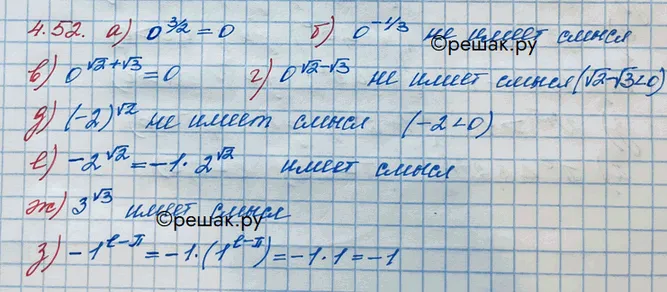 4.52. а) 0^{3/2} = 0 б) 0^{-1/3} не имеет смысл
©решак.ру
в) 0^{√2+√3} = 0 г) 0^{√2-√3} не имеет смысл (√2-√3<0)
д) (-2)^{√2} не имеет смысл (-2<0)
е) -2^{√2} = -1 · 2^{√2} имеет смысл
ж) 3^{√3} имеет смысл
©решак.ру
з) -1^{e-π} = -1 · (1^{e-π}) = -1 · 1 = -1